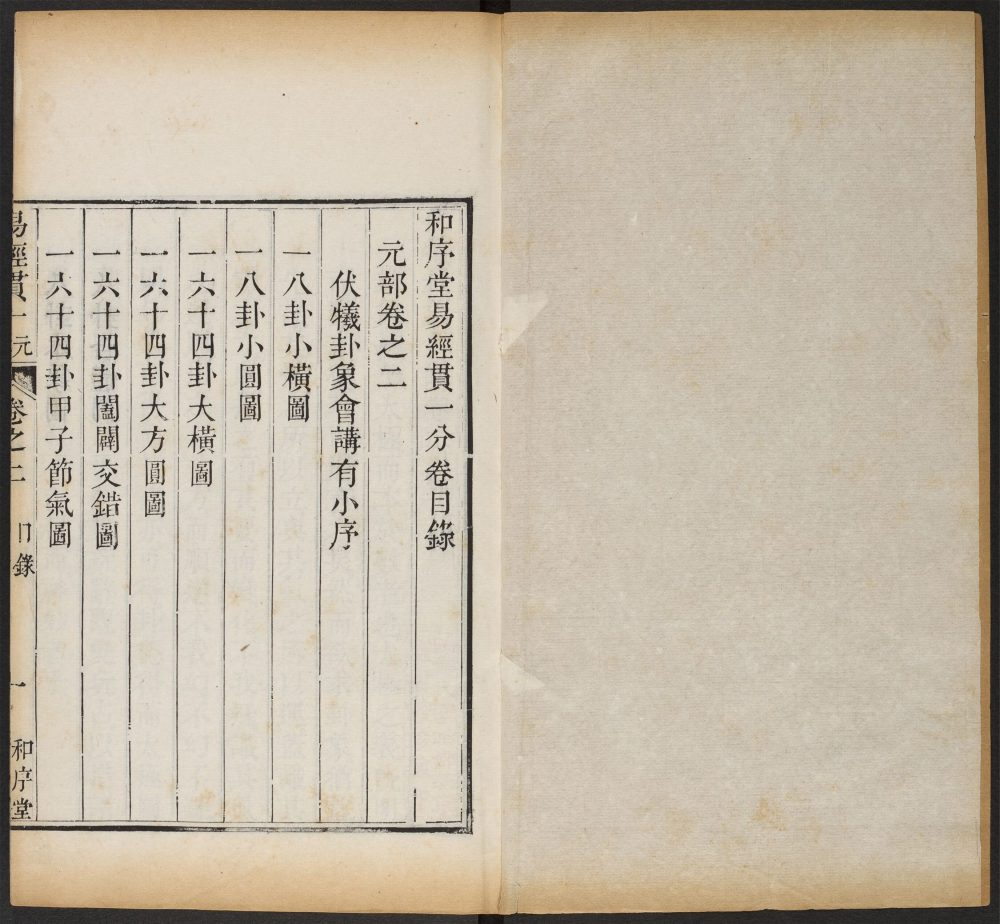 和序堂易經貫一分卷目錄
元部卷之二
伏犧卦象會講有小序
一八卦小橫圖
一八卦小圓圖
一六十四卦大橫圖
一六十四卦大方圓圖
一六十四卦闔闢交錯圖
一六十四卦甲子節氣圖
易經貫一元 卷之二 目錄 一 和序堂